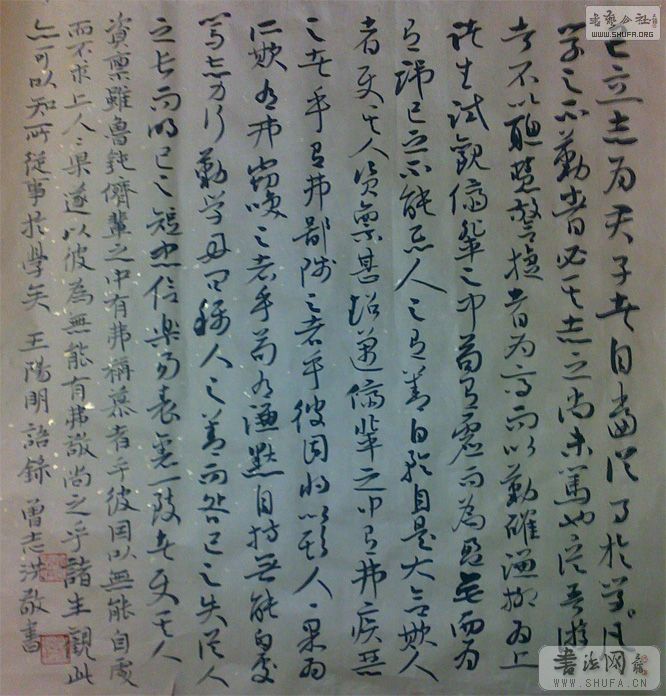 已立志为君子者自當從事於學。凡
學之不勤者必其志之尚未篤也從吾游
者不以聰慧警捷者为高而以勤確謙抑为上
諸生試觀儕輩之中苟有虛而為盈無而为
有諱己之不能忌人之有善自矜自是大言欺人
者使其人資稟甚超邁儕輩之中有弗疾惡
之者乎有弗鄙賤之者乎彼固將以欺人人果为
所欺有弗竊笑之者乎苟有謙默自持無能自處
篤志力行勤學好問稱人之善而咎己之失從人
之長而明己之短忠信樂易表裏一致者使其人
資稟雖魯鈍儕輩之中有弗稱慕者乎彼固以無能自處
而不求上人人果遂以彼為無能有弗敬尚之乎諸生觀此
亦可以知所從事於學矣 王陽明語錄 曾志洪敬書
書藝公社
WWW.SHUFA.ORG
書法网
WWW.SHUFA.CN